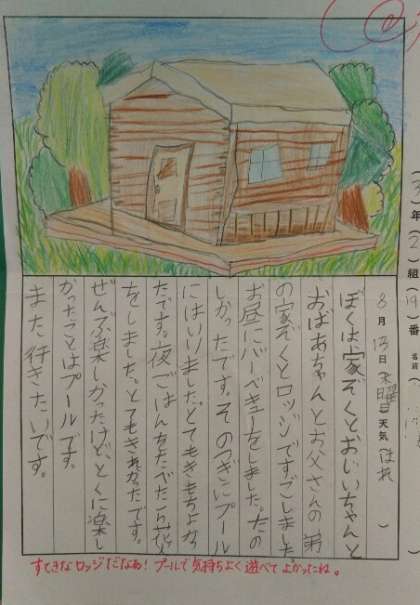 年 組 番
8月13日 木曜 天気(はれ)
ぼくは家ぞくとおじいちゃんと
おばあちゃんとお父さんの弟
の家ぞくとロッジですごしました
お昼にバーベキューをしました。たの
しかったです。そのつぎにプール
にはいりました。とてもきもちよかっ
たです。夜ごはんをたべたら花火
をしました。とてもきれいだったです。
ぜんぶ楽しかったけど、とくに楽し
かったことはプールです。
また、行きたいです。
すてきなロッジだなあ!プールで気持ちよく遊べてよかったね。